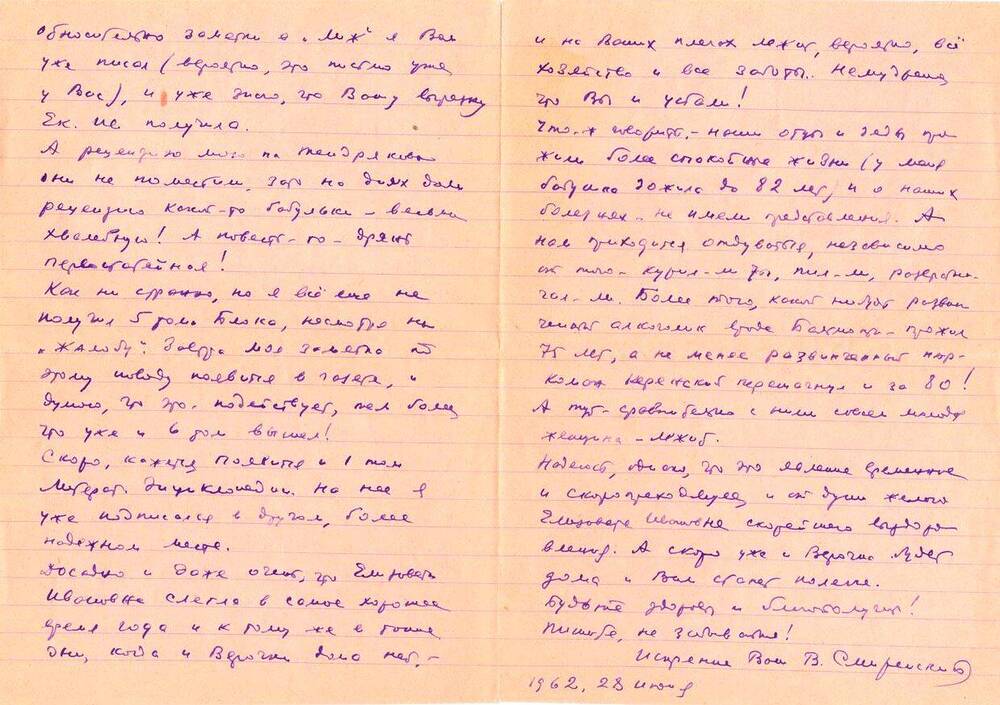 Относительно заметки о „М.Ж" я Вам
уже писал (вероятно, это письмо уже
у Вас), и уже знаю, что Вашу вырезку
Ек. Ис получила.
А рецензию мою на Тендрякова
они не поместили, зато на днях дали
рецензию какой-то бабульки – весьма
хвалебную! А повесть-то – дрянь
первостатейная!
Как ни странно, но я всё еще не
получил 5 тома Блока, несмотря на
„жалобу". Завтра моя заметка по
этому поводу появится в газете, и
думаю, что это подействует, тем более
что уже и 6 том вышел!
Скоро, кажется, появится и 1 том
Литерат. Энциклопедии. На нее я
уже подписался в другом, более
надежном месте.
Досадно и даже очень, что Елизавета
Ивановна слегла в самое хорошее
время года и к тому же в такие
дни, когда и Верочки дома нет, –
и на Ваших плечах лежит, вероятно, всё
хозяйство и все заботы. Немудрено,
что Вы и устали!
Что ж говорить, – наши отцы и деды про-
жили более спокойные жизни (у меня
бабушка дожила до 82 лет) и о наших
болезнях – не имели представления. А
нам приходится отдуваться, независимо
от того – курил-ли ты, пил-ли, развратни-
чал-ли. Более того, какой нибудь развин-
ченный алкоголик вроде Бальмонта – прожил
75 лет, а не менее развинченный нар-
коман Керенский перешагнул и за 80!
А тут – сравнительно с ними совсем молодая
женщина – лежит.
Надеюсь, однако, что это явление временное
и скоропреходящее и от души желаю
Елизавете Ивановне скорейшего выздоро-
вления. А скоро уже и Верочка будет
дома и Вам станет полегче.
Будьте здоровы и благополучны!
Пишите, не забывайте!
Искренне Ваш В. Смиренский
1962, 28 июня